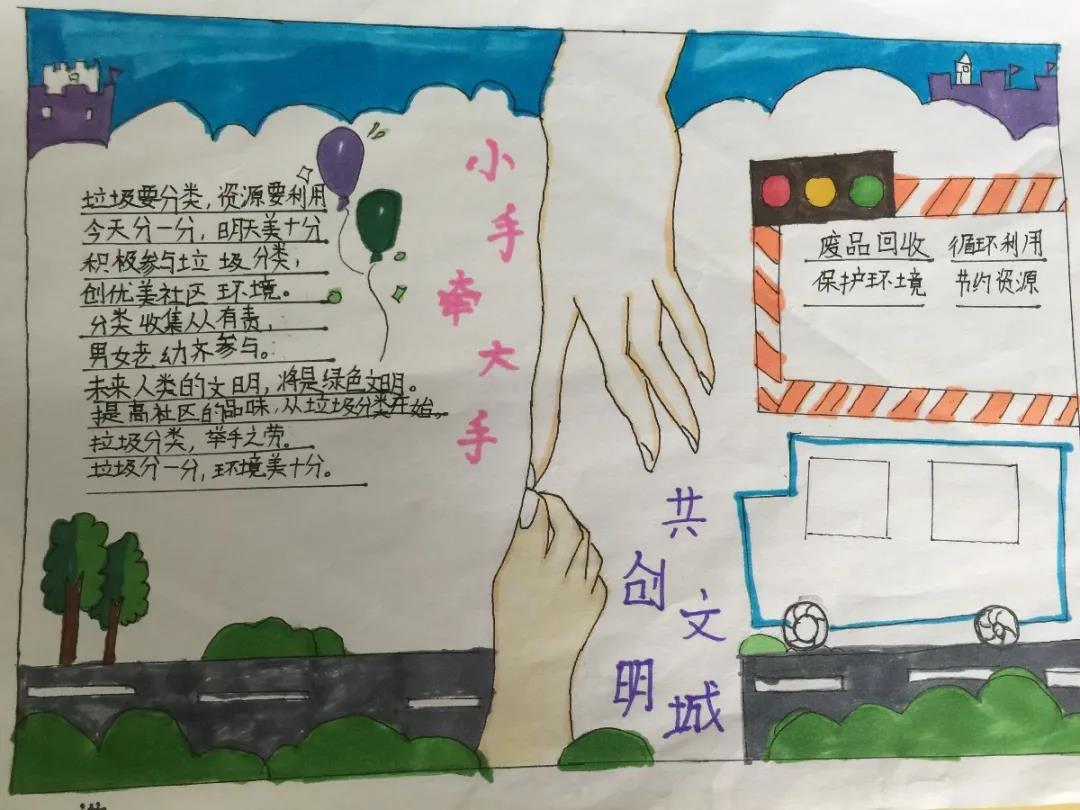 小手牵大手
垃圾要分类，资源要利用
今天分一分，明天美十分
积极参与垃圾分类，
创优美社区环境。
分类收集人人有责，
男女老幼齐参与。
未来人类的文明，将是绿色文明。
提高社区的品味，从垃圾分类开始。
垃圾分类，举手之劳。
垃圾分一分，环境美十分。
废品回收 循环利用
保护环境 节约资源
共创文明城